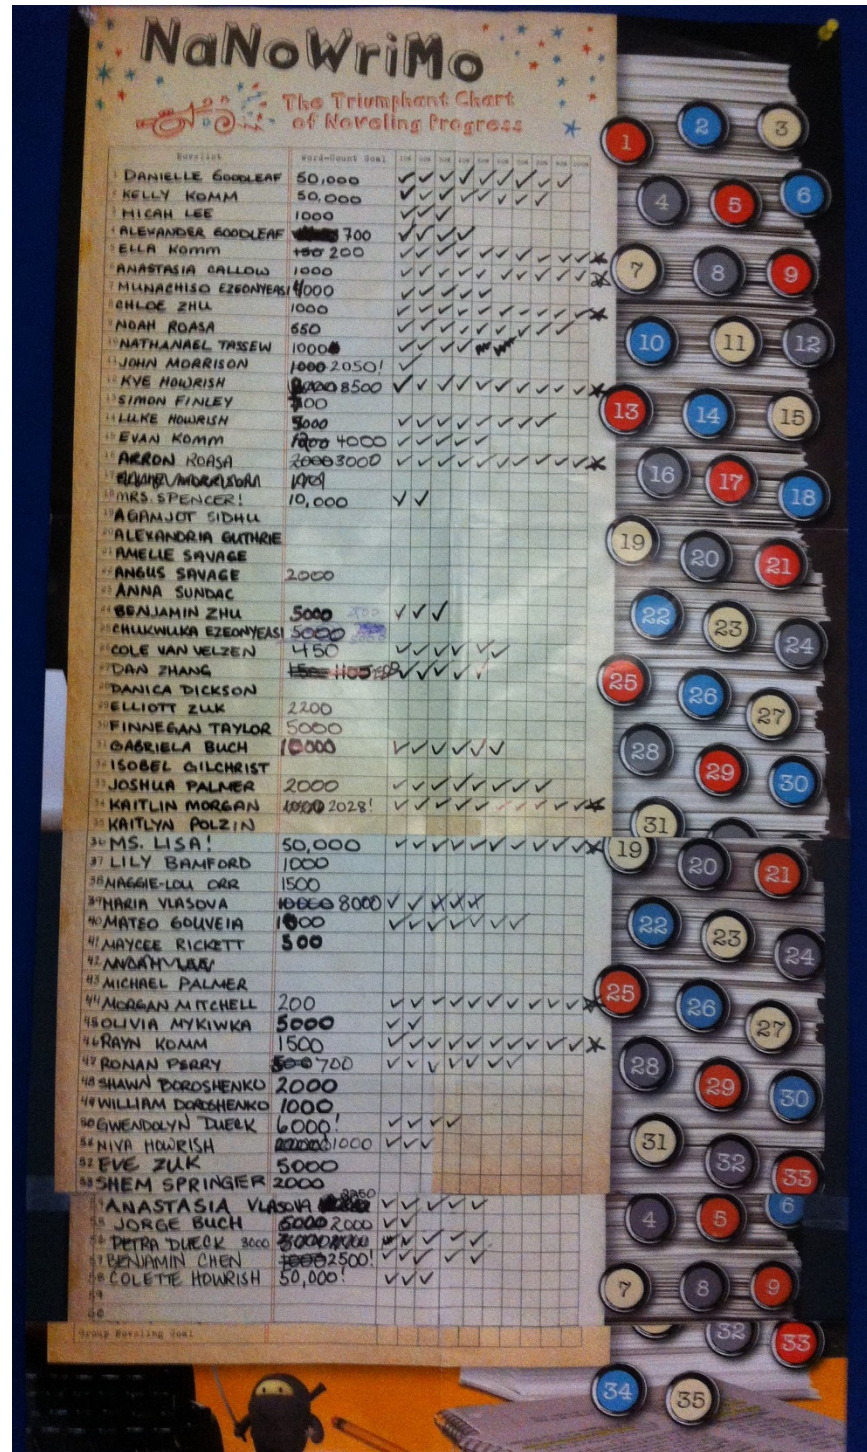 NaNoWriMo
The Triumphant Chart
of Noveling Progress
Novelist Word-Count Goal 10% 20% 30% 40% 50% 60% 70% 80% 90% 100%
1 DANIELLE GOODLEAF 50,000
2 KELLY KOMM 50,000
3 MICAH LEE 1000
4 ALEXANDER GOODLEAF 700
5 ELLA KOMM 150 200
6 ANASTASIA CALLOW 1000
7 MUNACHISO EZEONYEASI 4000
8 CHLOE ZHU 1000
9 NOAH ROASA 650
10 NATHANAEL TASSEW 1000
11 JOHN MORRISON 1000 2050!
12 KYE HOWRISH 8500
13 SIMON FINLEY 500
14 LUKE HOWRISH 5000
15 EVAN KOMM 1200 4000
16 ARRON ROASA 2000 3000
17
18 MRS. SPENCER! 10,000
19 AGAMJOT SIDHU
20 ALEXANDRIA GUTHRIE
21 AMELIE SAVAGE
22 ANGUS SAVAGE 2000
23 ANNA SUNDAC
24 BENJAMIN ZHU 5000
25 CHUKWUKA EZEONYEASI 5000
26 COLE VAN VELZEN 450
27 DAN ZHANG 1500 1105
28 DANICA DICKSON
29 ELLIOTT ZUK 2200
30 FINNEGAN TAYLOR 5000
31 GABRIELA BUCH 10000
32 ISOBEL GILCHRIST
33 JOSHUA PALMER 2000
34 KAITLIN MORGAN 2028!
35 KAITLYN POLZIN
36 MS. LISA! 50,000
37 LILY BAMFORD 1000
38 MAGGIE-LOU ORR 1500
39 MARIA VLASOVA 10000 8000
40 MATEO GOUVEIA 1000
41 MAYCEE RICKETT 500
42
43 MICHAEL PALMER
44 MORGAN MITCHELL 200
45 OLIVIA MYKIWKA 5000
46 RAYN KOMM 1500
47 RONAN PERRY 500 700
48 SHAWN DOROSHENKO 2000
49 WILLIAM DOROSHENKO 1000
50 GWENDOLYN DUECK 6000!
51 NIVA HOWRISH 1000
52 EVE ZUK 5000
53 SHEM SPRINGER 2000
54 ANASTASIA VLASOVA 2250
55 JORGE BUCH 5000 2000
56 PETRA DUECK 3000
57 BENJAMIN CHEN 1000 2500!
58 COLETTE HOWRISH 50,000!
59
60
Group Noveling Goal
1 2 3
4 5 6
7 8 9
10 11 12
13 14 15
16 17 18
19 20 21
22 23 24
25 26 27
28 29 30
31
19 20 21
22 23 24
25 26 27
28 29 30
31 32 33
4 5 6
7 8 9
32 33
34 35